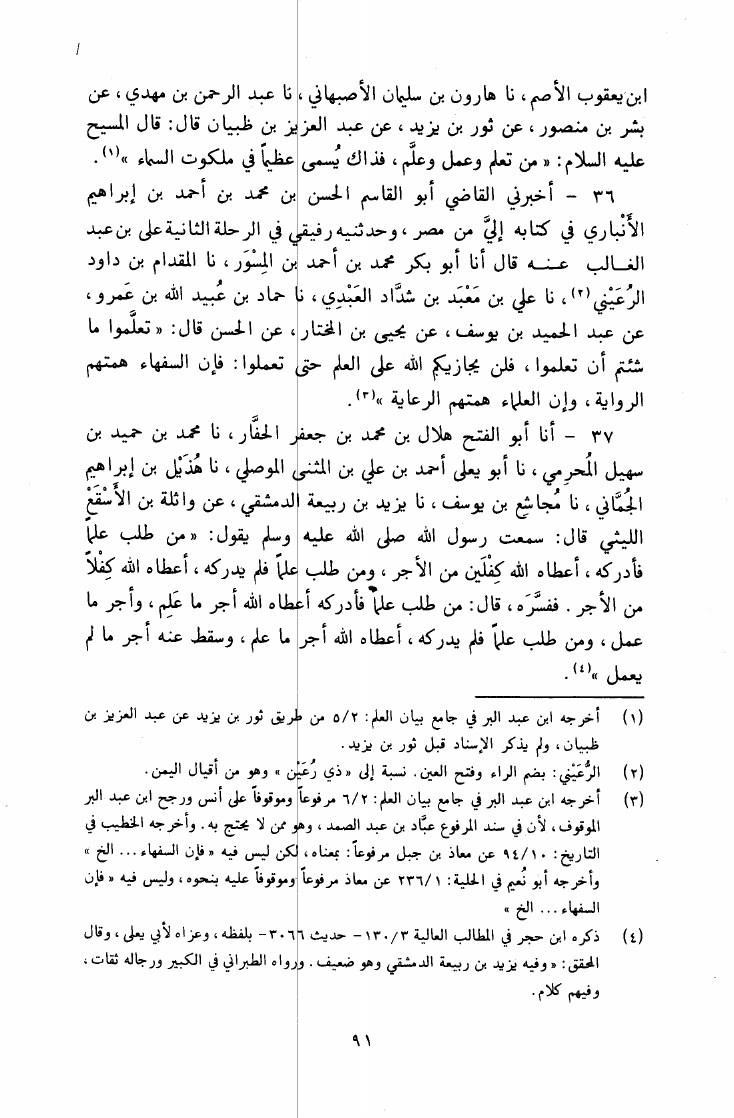 ابن يعقوب الأصم ، نا هارون بن سليمان الأصبهاني ، نا عبد الرحمن بن مهدي ، عن
بشر بن منصور ، عن ثور بن يزيد ، عن عبد العزيز بن ظبيان قال : قال المسيح
عليه السلام : « من تعلم وعمل وعلَّم ، فذاك يُسمى عظيماً في ملكوت السماء »(١) .
٣٦ – أخبرني القاضي أبو القاسم الحسن بن محمد بن أحمد بن إبراهيم
الأَنْباري في كتابه إليَّ من مصر ، وحدثنيه رفيقي في الرحلة الثانية علي بن عبد
الغالب عنه قال أنا أبو بكر محمد بن أحمد بن المِسْوَر ، نا المقدام بن داود
الرُعَيْني(٢) ، نا علي بن مَعْبَد بن شدَّاد العَبْدِي ، نا حماد بن عُبيد الله بن عمرو ،
عن عبد الحميد بن يوسف ، عن يحيى بن المختار ، عن الحسن قال : « تعلَّموا ما
شئتم أن تعلموا ، فلن يجازيكم الله على العلم حتى تعملوا : فإن السفهاء همتهم
الرواية ، وإن العلماء همتهم الرعاية »(٣) .
٣٧ – أنا أبو الفتح هلال بن محمد بن جعفر الحفَّار ، نا محمد بن حميد بن
سهيل المُحرمي ، نا أبو يعلى أحمد بن علي بن المثنى الموصلي ، نا هُذَيْل بن إبراهيم
الجُمَّاني ، نا مُجاشع بن يوسف ، نا يزيد بن ربيعة الدمشقي ، عن واثلة بن الأَسْقَعْ
الليثي قال : سمعت رسول الله صلى الله عليه وسلم يقول : « من طلب علماً
فأدركه ، أعطاه الله كِفْلَين من الأجر ، ومن طلب علماً فلم يدركه ، أعطاه الله كِفْلاً
من الأجر . ففسَّرَه ، قال : من طلب علماً فأدركه أعطاه الله أجر ما عَلِم ، وأجر ما
عمل ، ومن طلب علماً فلم يدركه ، أعطاه الله أجر ما علم ، وسقط عنه أجر ما لم
يعمل »(٤) .
(١) أخرجه ابن عبد البر في جامع بيان العلم : ٥/٢ من طريق ثور بن يزيد عن عبد العزيز بن
ظبيان ، ولم يذكر الإسناد قبل ثور بن يزيد .
(٢) الرُّعَيْني : بضم الراء وفتح العين . نسبة إلى « ذي رُعَيْن » وهو من أقيال اليمن .
(٣) أخرجه ابن عبد البر في جامع بيان العلم : ٦/٢ مرفوعاً وموقوفاً على أنس ورجح ابن عبد البر
الموقوف ، لأن في سند المرفوع عبَّاد بن عبد الصمد ، وهو ممن لا يحتج به . وأخرجه الخطيب في
التاريخ : ٩٤/١٠ عن معاذ بن جبل مرفوعاً : بمعناه ، لكن ليس فيه « فإن السفهاء ... الخ »
وأخرجه أبو نُعيم في الحلية : ٢٣٦/١ عن معاذ مرفوعاً وموقوفاً عليه بنحوه ، وليس فيه « فإن
السفهاء ... الخ »
(٤) ذكره ابن حجر في المطالب العالية ١٣٠/٣ – حديث ٣٠٦٦ – بلفظه ، وعزاه لأبي يعلى ، وقال
المحقق : « وفيه يزيد بن ربيعة الدمشقي وهو ضعيف . ورواه الطبراني في الكبير ورجاله ثقات ،
وفيهم كلام .
٩١